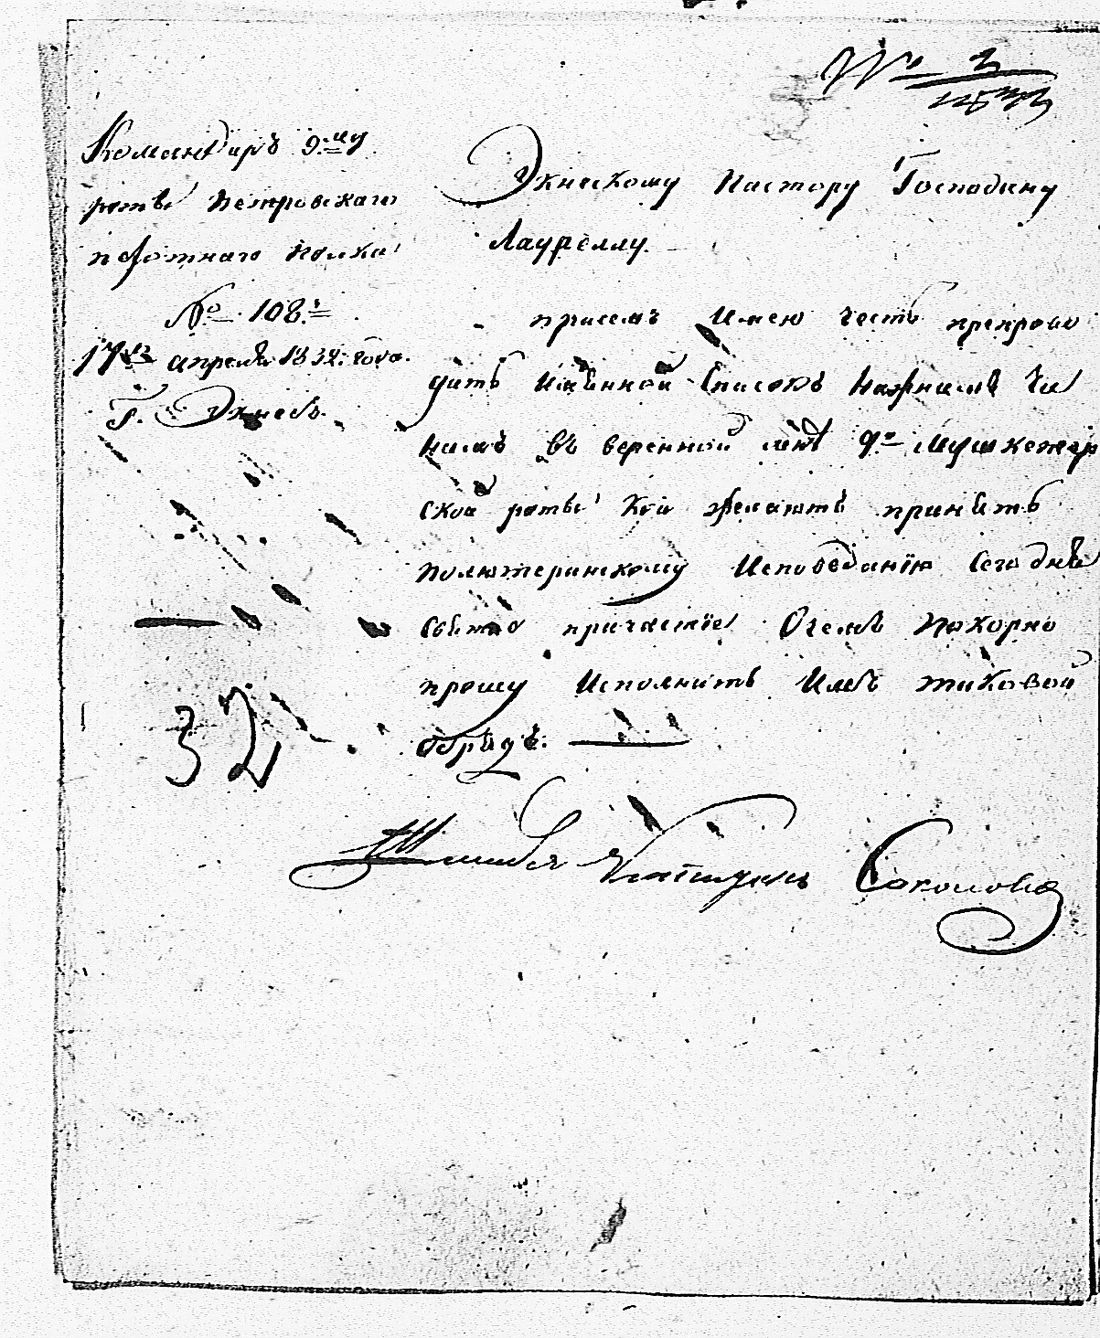 № 3
Командиръ 9:му
роты Петровскаго
пехотнаго полка
№ 108:
17го апреля 1832: года.
Г. Экнесъ.
32
Экнескому Пастору Господину
Лауреллу.
присемъ Имею честь препрово
дить имянной Списокъ Нижнимъ Чи
намъ въ веренной мне 9й Мушкетер
ской роты кои желаютъ принять
полютеринскому Исповеданїю Сегодня
Святаго причастїя Очемъ покорно
прошу Исполнить Имъ таковой
обрядъ.
Капитанъ Соколовъ